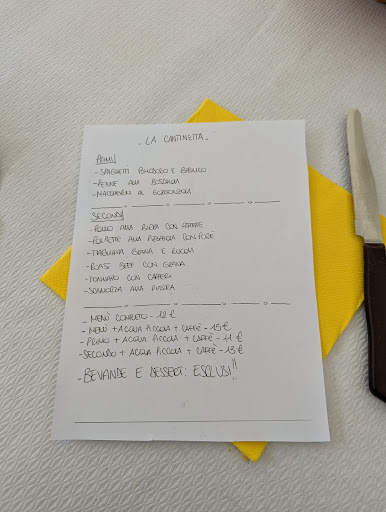 - LA CANTINETTA -
PRIMI
- SPAGHETTI POMODORO E BASILICO
- PENNE ALLA BOSCAIOLA
- MACCHERONI AL GORGONZOLA
SECONDI
- POLLO ALLA BIRRA CON PATATE
- POLPETTE ALLA PIZZAIOLA CON PURÈ
- TAGLIATA GRANA E RUCOLA
- ROAST BEEF CON GRANA
- TONNATO CON CAPPERI
- SCAMORZA ALLA PIASTRA
- MENÙ COMPLETO - 12 €
- MENÙ + ACQUA PICCOLA + CAFFÈ - 15 €
- PRIMO + ACQUA PICCOLA + CAFFÈ - 11 €
- SECONDO + ACQUA PICCOLA + CAFFÈ - 13 €
- BEVANDE E DESSERT: ESCLUSI!!